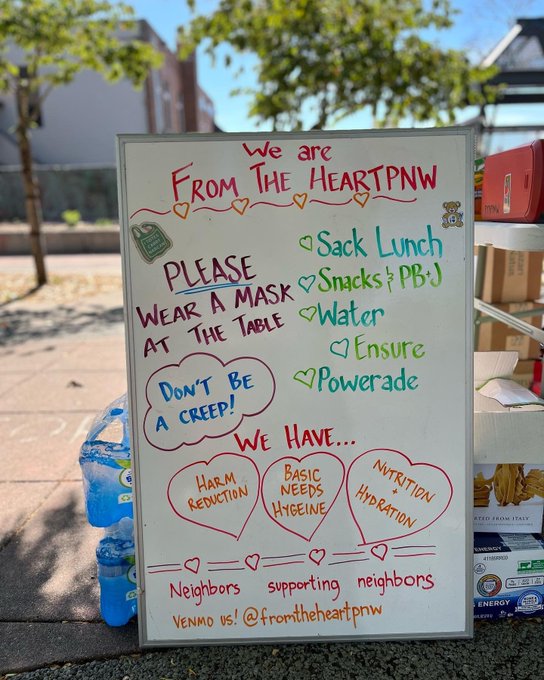 We are
FROM THE HEARTPNW
PLEASE
WEAR A MASK
AT THE TABLE
DON'T BE
A CREEP!
Sack Lunch
Snacks & PB+J
Water
Ensure
Powerade
WE HAVE...
HARM
REDUCTION
BASIC
NEEDS
HYGEINE
NUTRITION
+
HYDRATION
Neighbors supporting neighbors
VENMO US! @fromtheheartpnw
RTED FROM ITALY
ENERGY